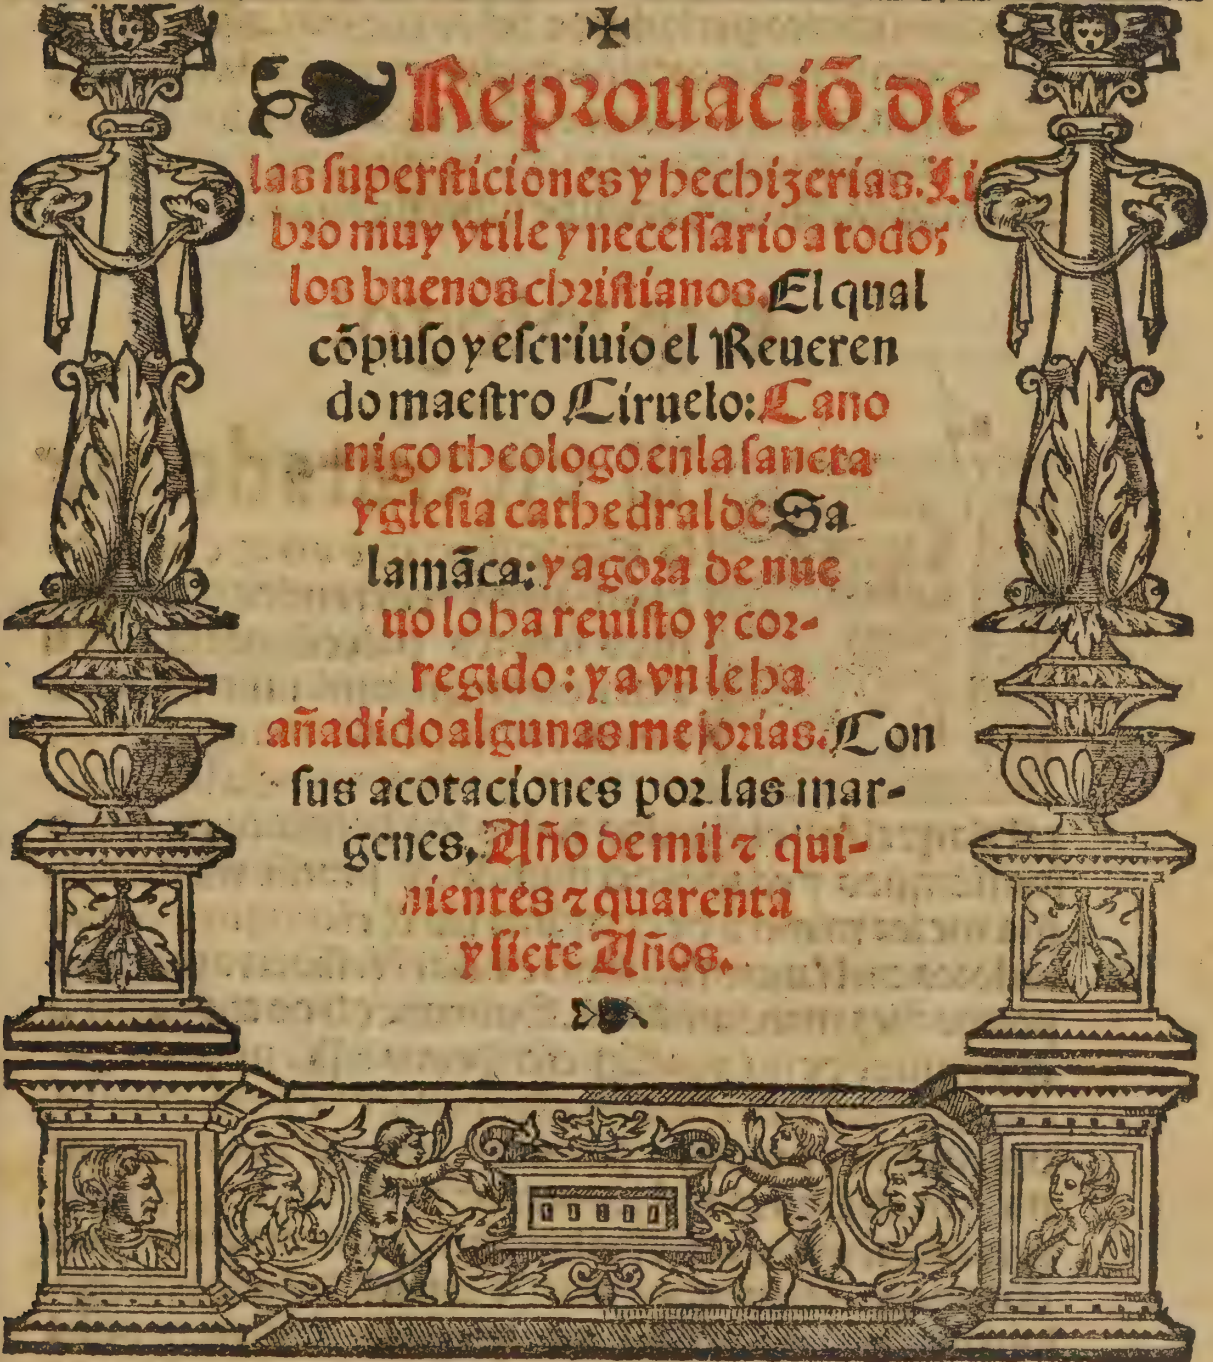 ✠
Reprouaciõ de
las supersticiones y hechizerias. Li
bro muy vtile y necessario a todos
los buenos christianos. El qual
cõpuso y escriuio el Reueren
do maestro Ciruelo: Cano
nigo theologo en la sancta
yglesia cathedral de Sa
lamãca: y agora de nue
uo lo ha reuisto y cor-
regido: y a vn le ha
añadido algunas mejorias. Con
sus acotaciones por las mar-
genes. Año de mil ⁊ qui-
nientes ⁊ quarenta
y siete Años.